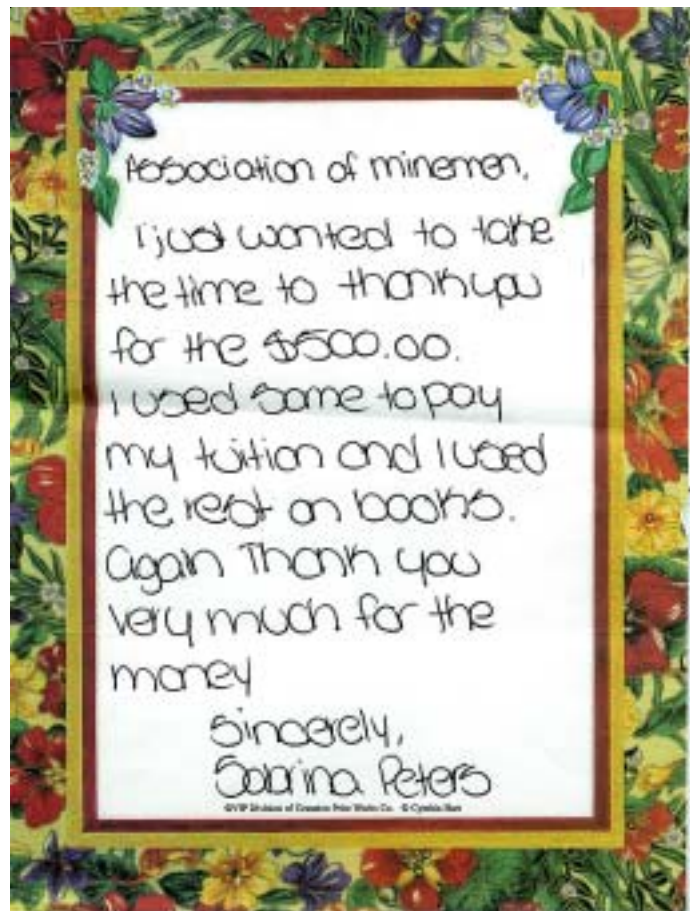 Association of minemen,
I just wanted to take
the time to thank you
for the $500.00.
I used some to pay
my tuition and I used
the rest on books.
again Thank you
very much for the
money
Sincerely,
Sabrina Peters
©VIP Division of Cranston Print Works Co. © Cynthia Hart